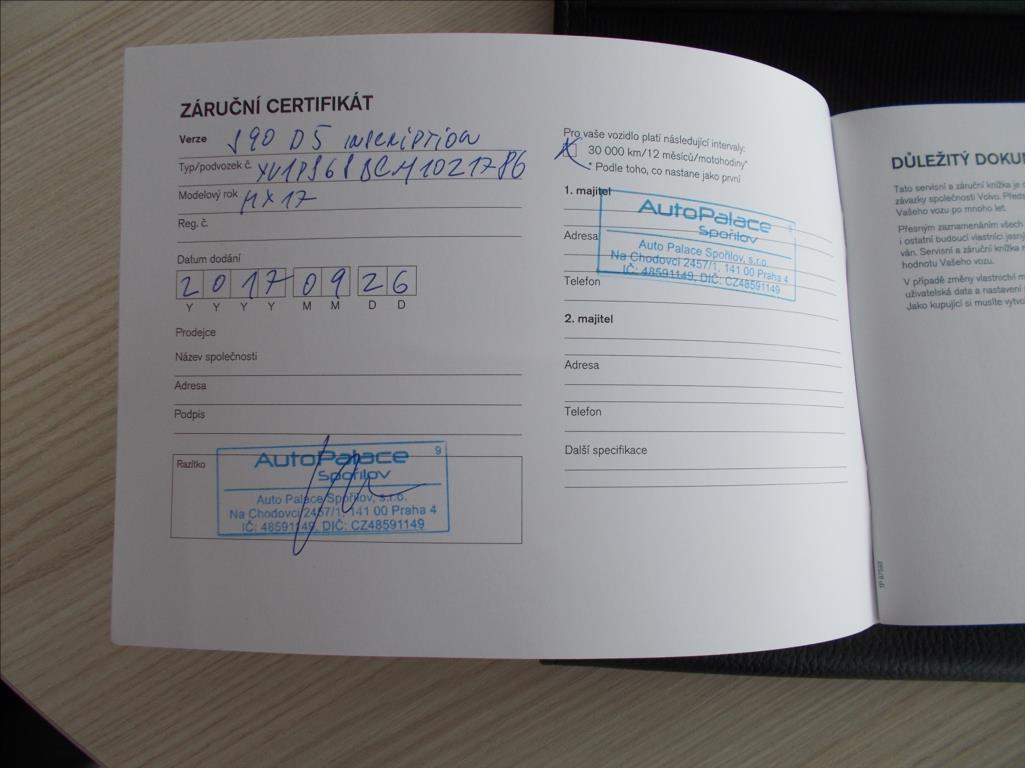 ZÁRUČNÍ CERTIFIKÁT
Verze S90 D5 INSCRIPTION
Typ/podvozek č. YV1PS68BCH1021786
Modelový rok MY 17
Reg. č.
Datum dodání
2 0 1 7 0 9 2 6
Y Y Y Y M M D D
Prodejce
Název společnosti
Adresa
Podpis
Razítko
AutoPalace 9
Spořilov
Auto Palace Spořilov, s.r.o.
Na Chodovci 2457/1, 141 00 Praha 4
IČ: 48591149, DIČ: CZ48591149
Pro vaše vozidlo platí následující intervaly:
30 000 km/12 měsíců/motohodiny*
* Podle toho, co nastane jako první
1. majitel
AutoPalace
Spořilov
Adresa
Auto Palace Spořilov, s.r.o.
Na Chodovci 2457/1, 141 00 Praha 4
IČ: 48591149, DIČ: CZ48591149
Telefon
2. majitel
Adresa
Telefon
Další specifikace
DŮLEŽITÝ DOKU
Tato servisní a záruční knížka je
závazky společnosti Volvo. Před
Vašeho vozu po mnoho let.
Přesným zaznamenáním všech
i ostatní budoucí vlastníci jas
ván. Servisní a záruční knížka
hodnotu Vašeho vozu.
V případě změny vlastnictví
uživatelská data a nastavení
Jako kupující si musíte vytvo